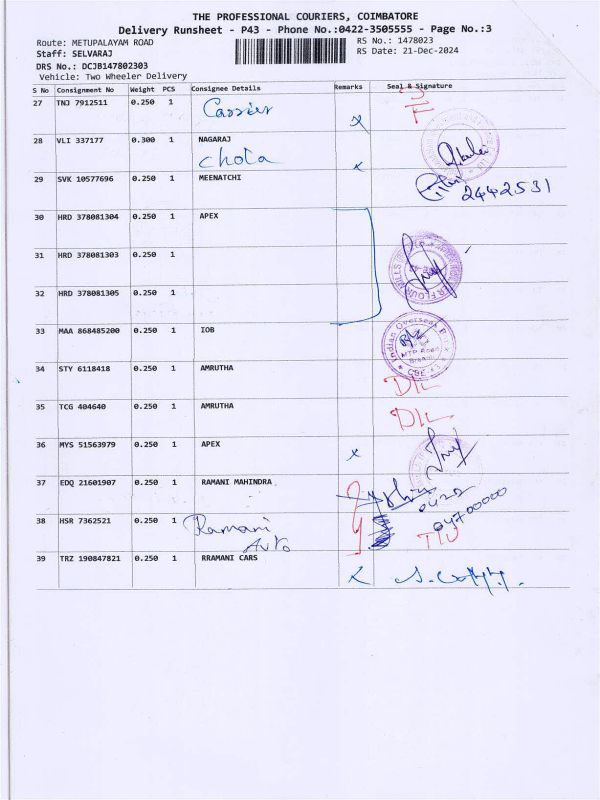 THE PROFESSIONAL COURIERS, COIMBATORE
Delivery Runsheet - P43 - Phone No.:0422-3505555 - Page No.:3
Route: METUPALAYAM ROAD
RS No.: 1478023
Staff: SELVARAJ
RS Date: 21-Dec-2024
DRS No.: DCJB147802303
Vehicle: Two Wheeler Delivery
S No Consignment No Weight PCS Consignee Details Remarks Seal & Signature
27 TNJ 7912511 0.250 1 Carrier
28 VLI 337177 0.300 1 NAGARAJ
chola
29 SVK 10577696 0.250 1 MEENATCHI
2442531
30 HRD 378081304 0.250 1 APEX
31 HRD 378081303 0.250 1
32 HRD 378081305 0.250 1
33 MAA 868485200 0.250 1 IOB
Indian Overseas
MTP Road
Branch
CBE
34 STY 6118418 0.250 1 AMRUTHA
D/L
35 TCG 404640 0.250 1 AMRUTHA
D/L
36 MYS 51563979 0.250 1 APEX
37 EDQ 21601907 0.250 1 RAMANI MAHINDRA
0422
38 HSR 7362521 0.250 1 Ramani
Auto
04700000
39 TRZ 190847821 0.250 1 RRAMANI CARS